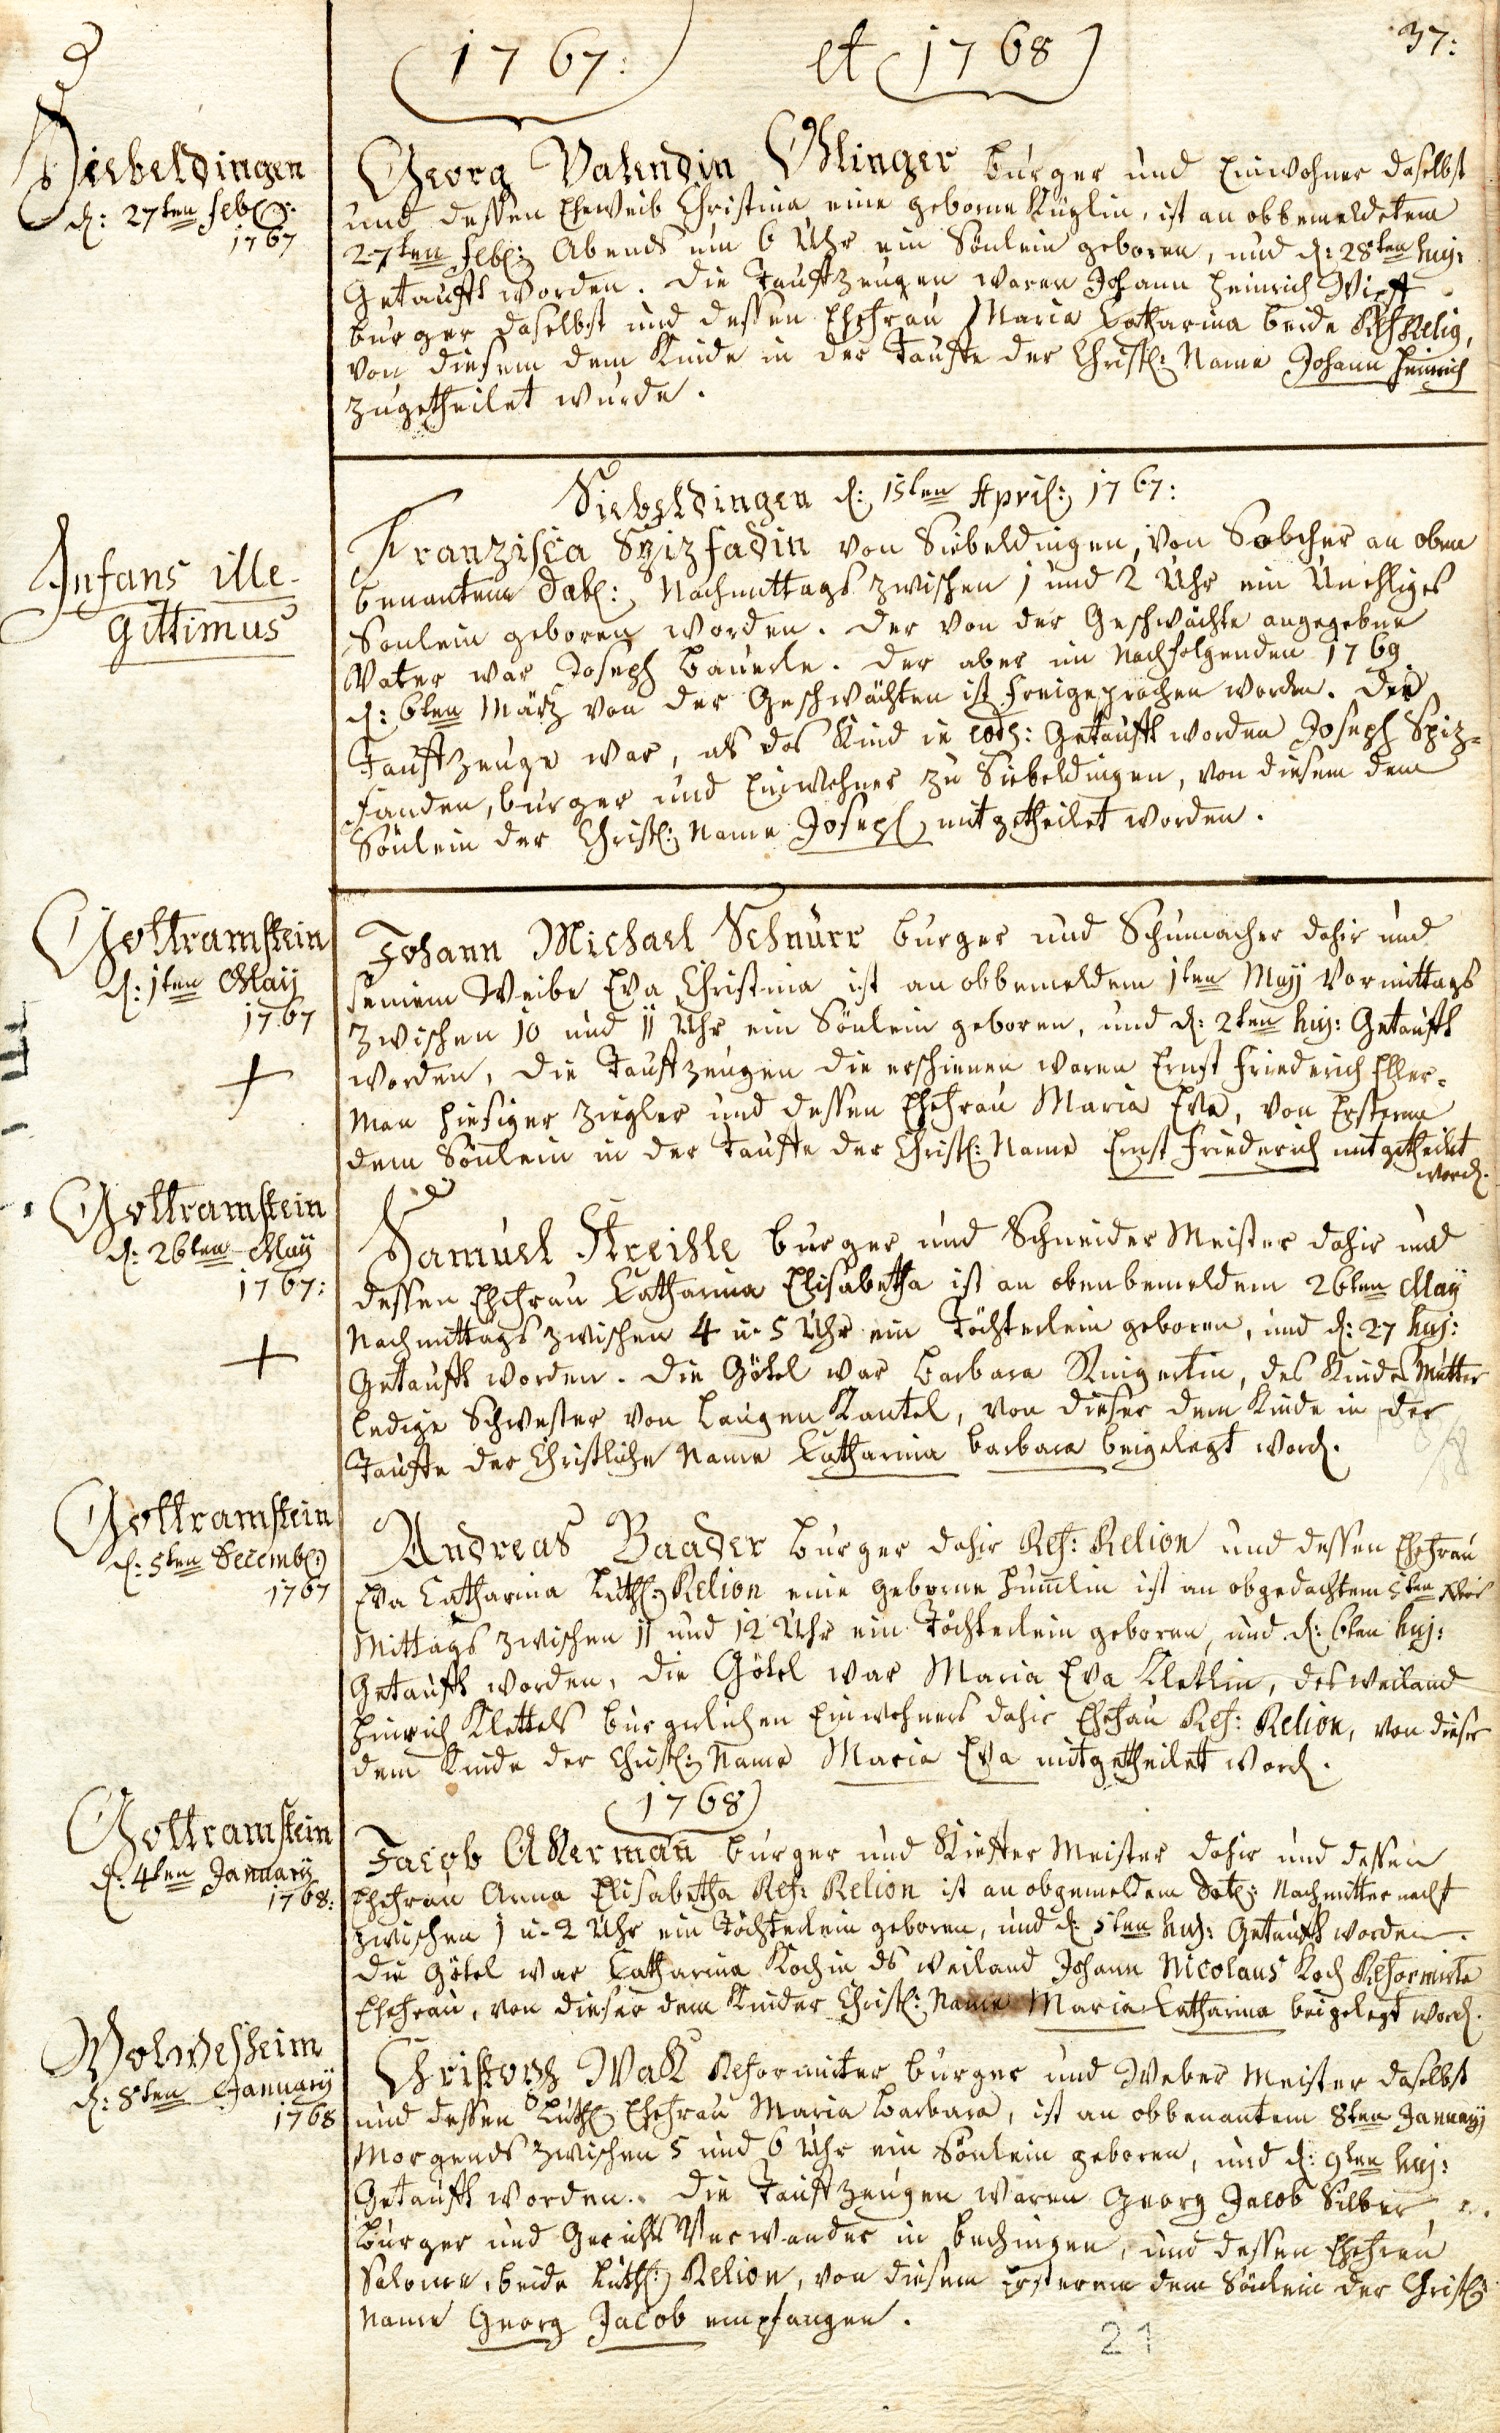 37:
1767: et 1768
Siebeldingen
d: 27ten feb:
1767
Georg Valendin Öhlinger burger und Einwohner daselbst
und dessen Eheweib Christina eine geborne Küglin, ist an obbemeldetem
27ten feb: Abends um 6 Uhr ein Sönlein geboren, und d: 28ten huj:
Getaufft worden. Die Tauffzeugen waren Johann Heinrich
burger daselbst und dessen Ehefrau Maria Catharina beide Ref Relig,
von diesem dem Kinde in der Tauffe der Christl: Name Johann Heinrich
zugetheilet wurde.
Siebeldingen d: 15ten April: 1767:
Infans ille-
gittimus
Franzisca Spizfadin von Siebeldingen, von Solcher an oben
benantem dat: Nachmittags zwischen 1 und 2 Uhr ein Unehliges
Sönlein geboren worden. Der von der Geschwächte angegebne
Vater war Joseph Bäuerle. Der aber im Nachfolgenden 1769
d: 6ten März von der Geschwächten ist freigesprochen worden. Der
Tauffzeuge war, als das Kind in eod: Getaufft worden Joseph Spiz-
faden, burger und Einwohner zu Siebeldingen, von diesem dem
Sönlein der Christl: Name Joseph mitgetheilet worden.
Gottramstein
d: 1ten May
1767
+
Johann Michael Schnürr burger und Schumacher dahir und
seinem Weibe Eva Christina ist an obbemeldem 1ten May Vormittags
zwischen 10 und 11 Uhr ein Sönlein geboren, und d: 2ten huj: Getaufft
worden, Die Tauffzeugen die erschienen waren Ernst Friederich Eller-
man hiesiger Ziegler und dessen Ehefrau Maria Eva, von Ersterem
dem Sönlein in der Tauffe der Christl: Name Ernst Friederich mitgetheilt
word.
Gottramstein
d: 26ten May
1767:
+
Samuel Streihle burger und Schneider Meister dahir und
dessen Ehefrau Catharina Elisabetha ist an obenbemeldem 26ten May
Nachmittags zwischen 4 u 5 Uhr ein Töchterlein geboren, und d: 27 huj:
Getaufft worden. Die Götel war Barbara Ringertin, des Kindes Mutter
ledige Schwester von Langen Kantel, von dieser dem Kinde in der
Tauffe der Christliche Name Catharina barbara beigelegt word.
Gottramstein
d: 5ten Decemb:
1767
Andreas Baader burger dahir Ref: Relion und dessen Ehefrau
Eva Catharina Luth: Relion eine geborne Hum̄lin ist an obgedachtem 5ten
Mittags zwischen 11 und 12 Uhr ein Töchterlein geboren, und d: 6ten huj:
Getaufft worden, die Götel war Maria Eva Klettin, des weiland
Hinrich Klettels burgerlichen Einwohners dahir Ehefrau Ref: Relion, von dieser
dem Kinde der Christl: Name Maria Eva mitgetheilet word.
1768
Gottramstein
d: 4ten January
1768:
Jacob Akerman̄ burger und Kieffer Meister dahir und dessen
Ehefrau Anna Elisabetha Ref: Relion ist an obgemeldem Dat: Nachmitternacht
zwischen 1 u 2 Uhr ein Töchterlein geboren, und d: 5ten huj: Getaufft worden.
Die Götel war Catharina Kochin ds weiland Johann Nicolaus Koch Reformirte
Ehefrau, von dieser dem Kinder Christl: Name Maria Catharina beigelegt word.
Wolmesheim
d: 8ten January
1768
Christoph Wak Reformirter burger und Weber Meister daselbst
und dessen Luth: Ehefrau Maria Barbara, ist an obbenantem 8ten January
Morgends zwischen 5 und 6 Uhr ein Sönlein geboren, und d: 9ten huj:
Getaufft worden. Die Tauffzeugen waren Georg Jacob Silber,
Burger und Gerichts Verwander in bechingen, und dessen Ehefrau
Salome, beide Luth: Relion, von diesem Ersterem dem Sönlein der Christl:
Name Georg Jacob empfangen.
21